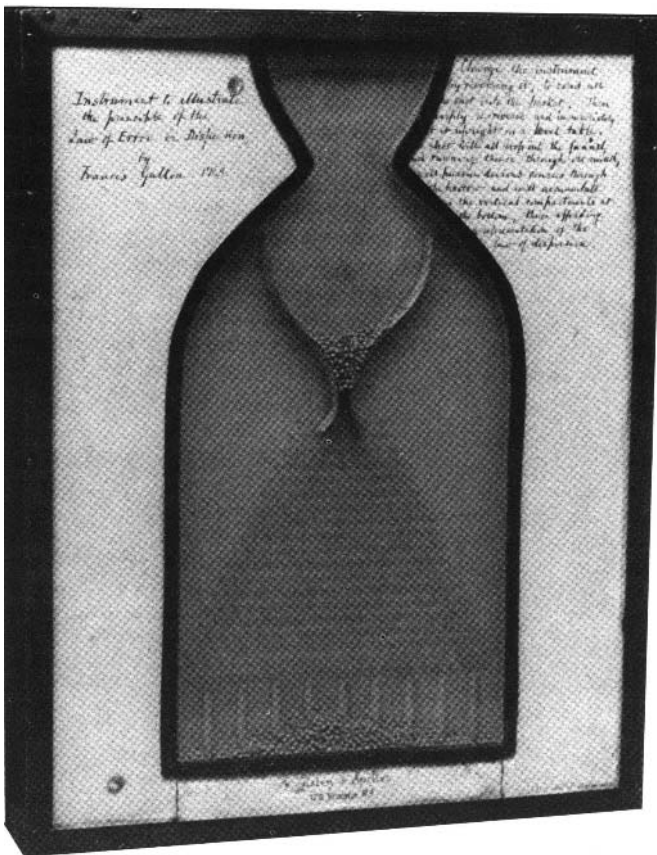 Instrument to illustrate
the principle of the
Law of Error or Dispersion
by
Francis Galton
Charge the instrument
by reversing it, to send all
shot into the pocket. Then
sharply re-reverse and immediately
set it upright on a level table.
shot will all drop into the funnel,
and running thence through its mouth,
will pursue devious courses through
the harrow and will accumulate
in the vertical compartments at
the bottom, there affording
representation of the
law of dispersion